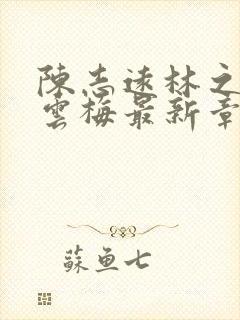 陳志遠林之
雲梅最新章
蘇魚七